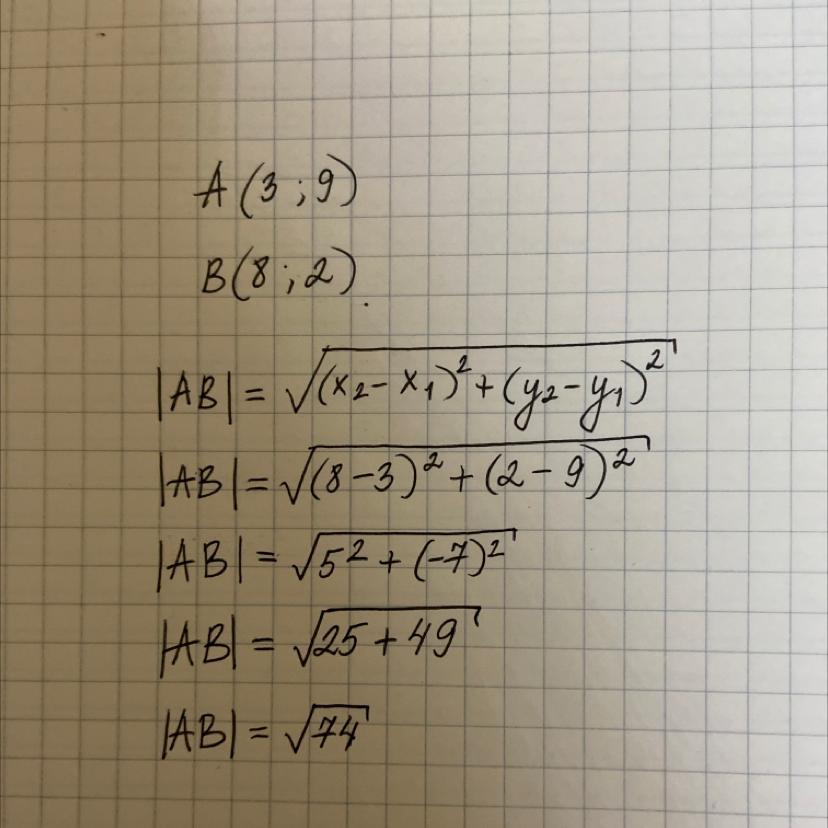 A(3;9)
B(8;2).
|AB| = √((x₂ - x₁)² + (y₂ - y₁)²)
|AB| = √((8 - 3)² + (2 - 9)²)
|AB| = √(5² + (-7)²)
|AB| = √(25 + 49)
|AB| = √74